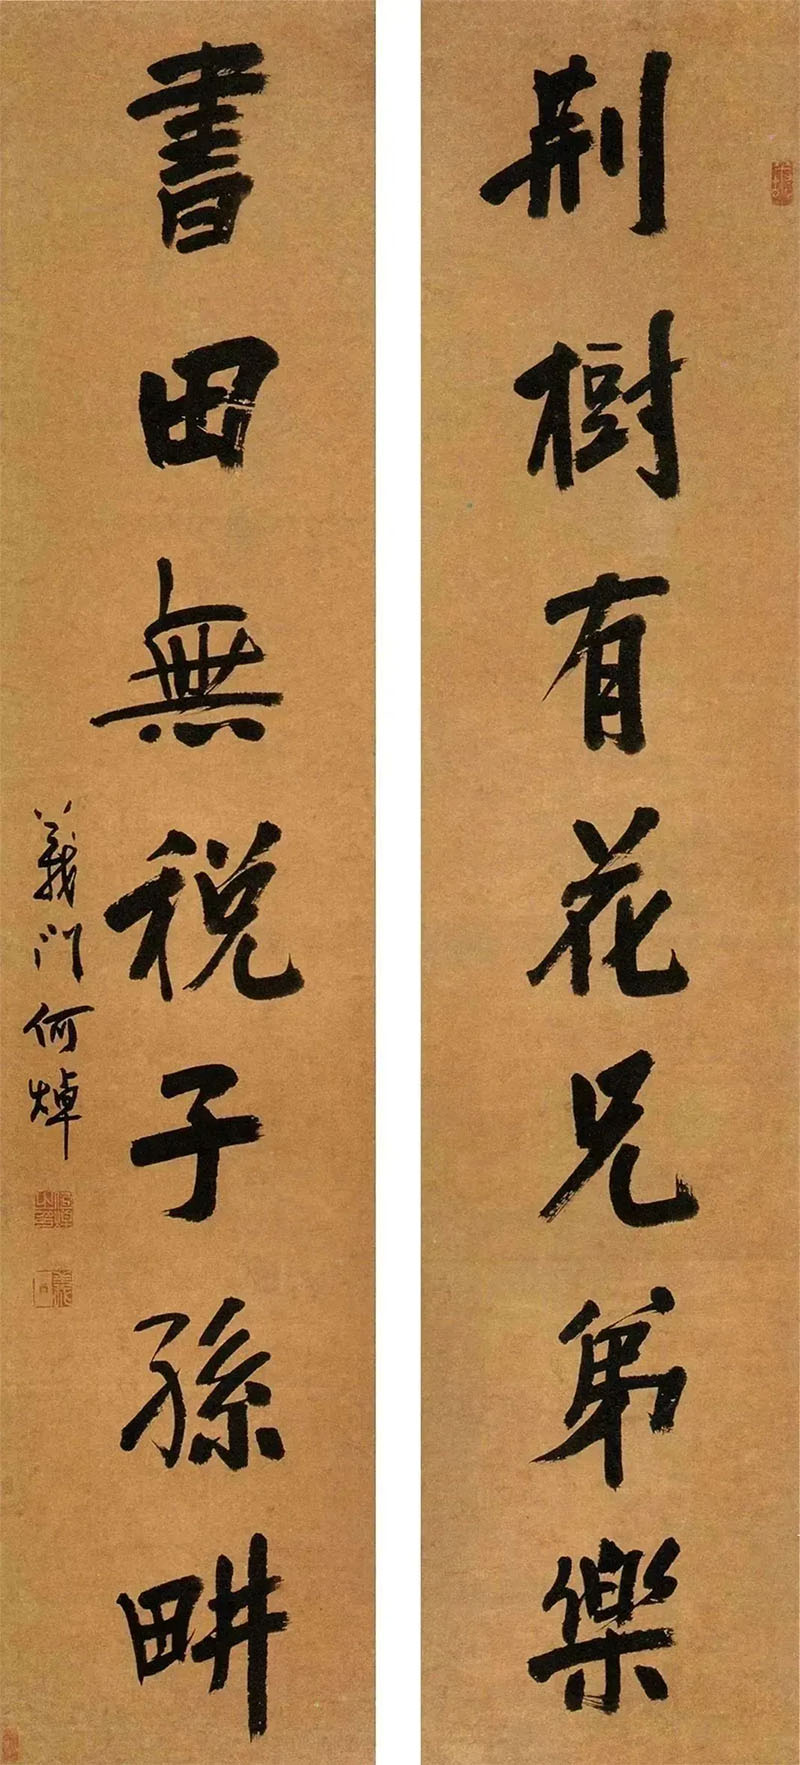 荆樹有花兄弟樂
書田無税子孫畊
義門何焯